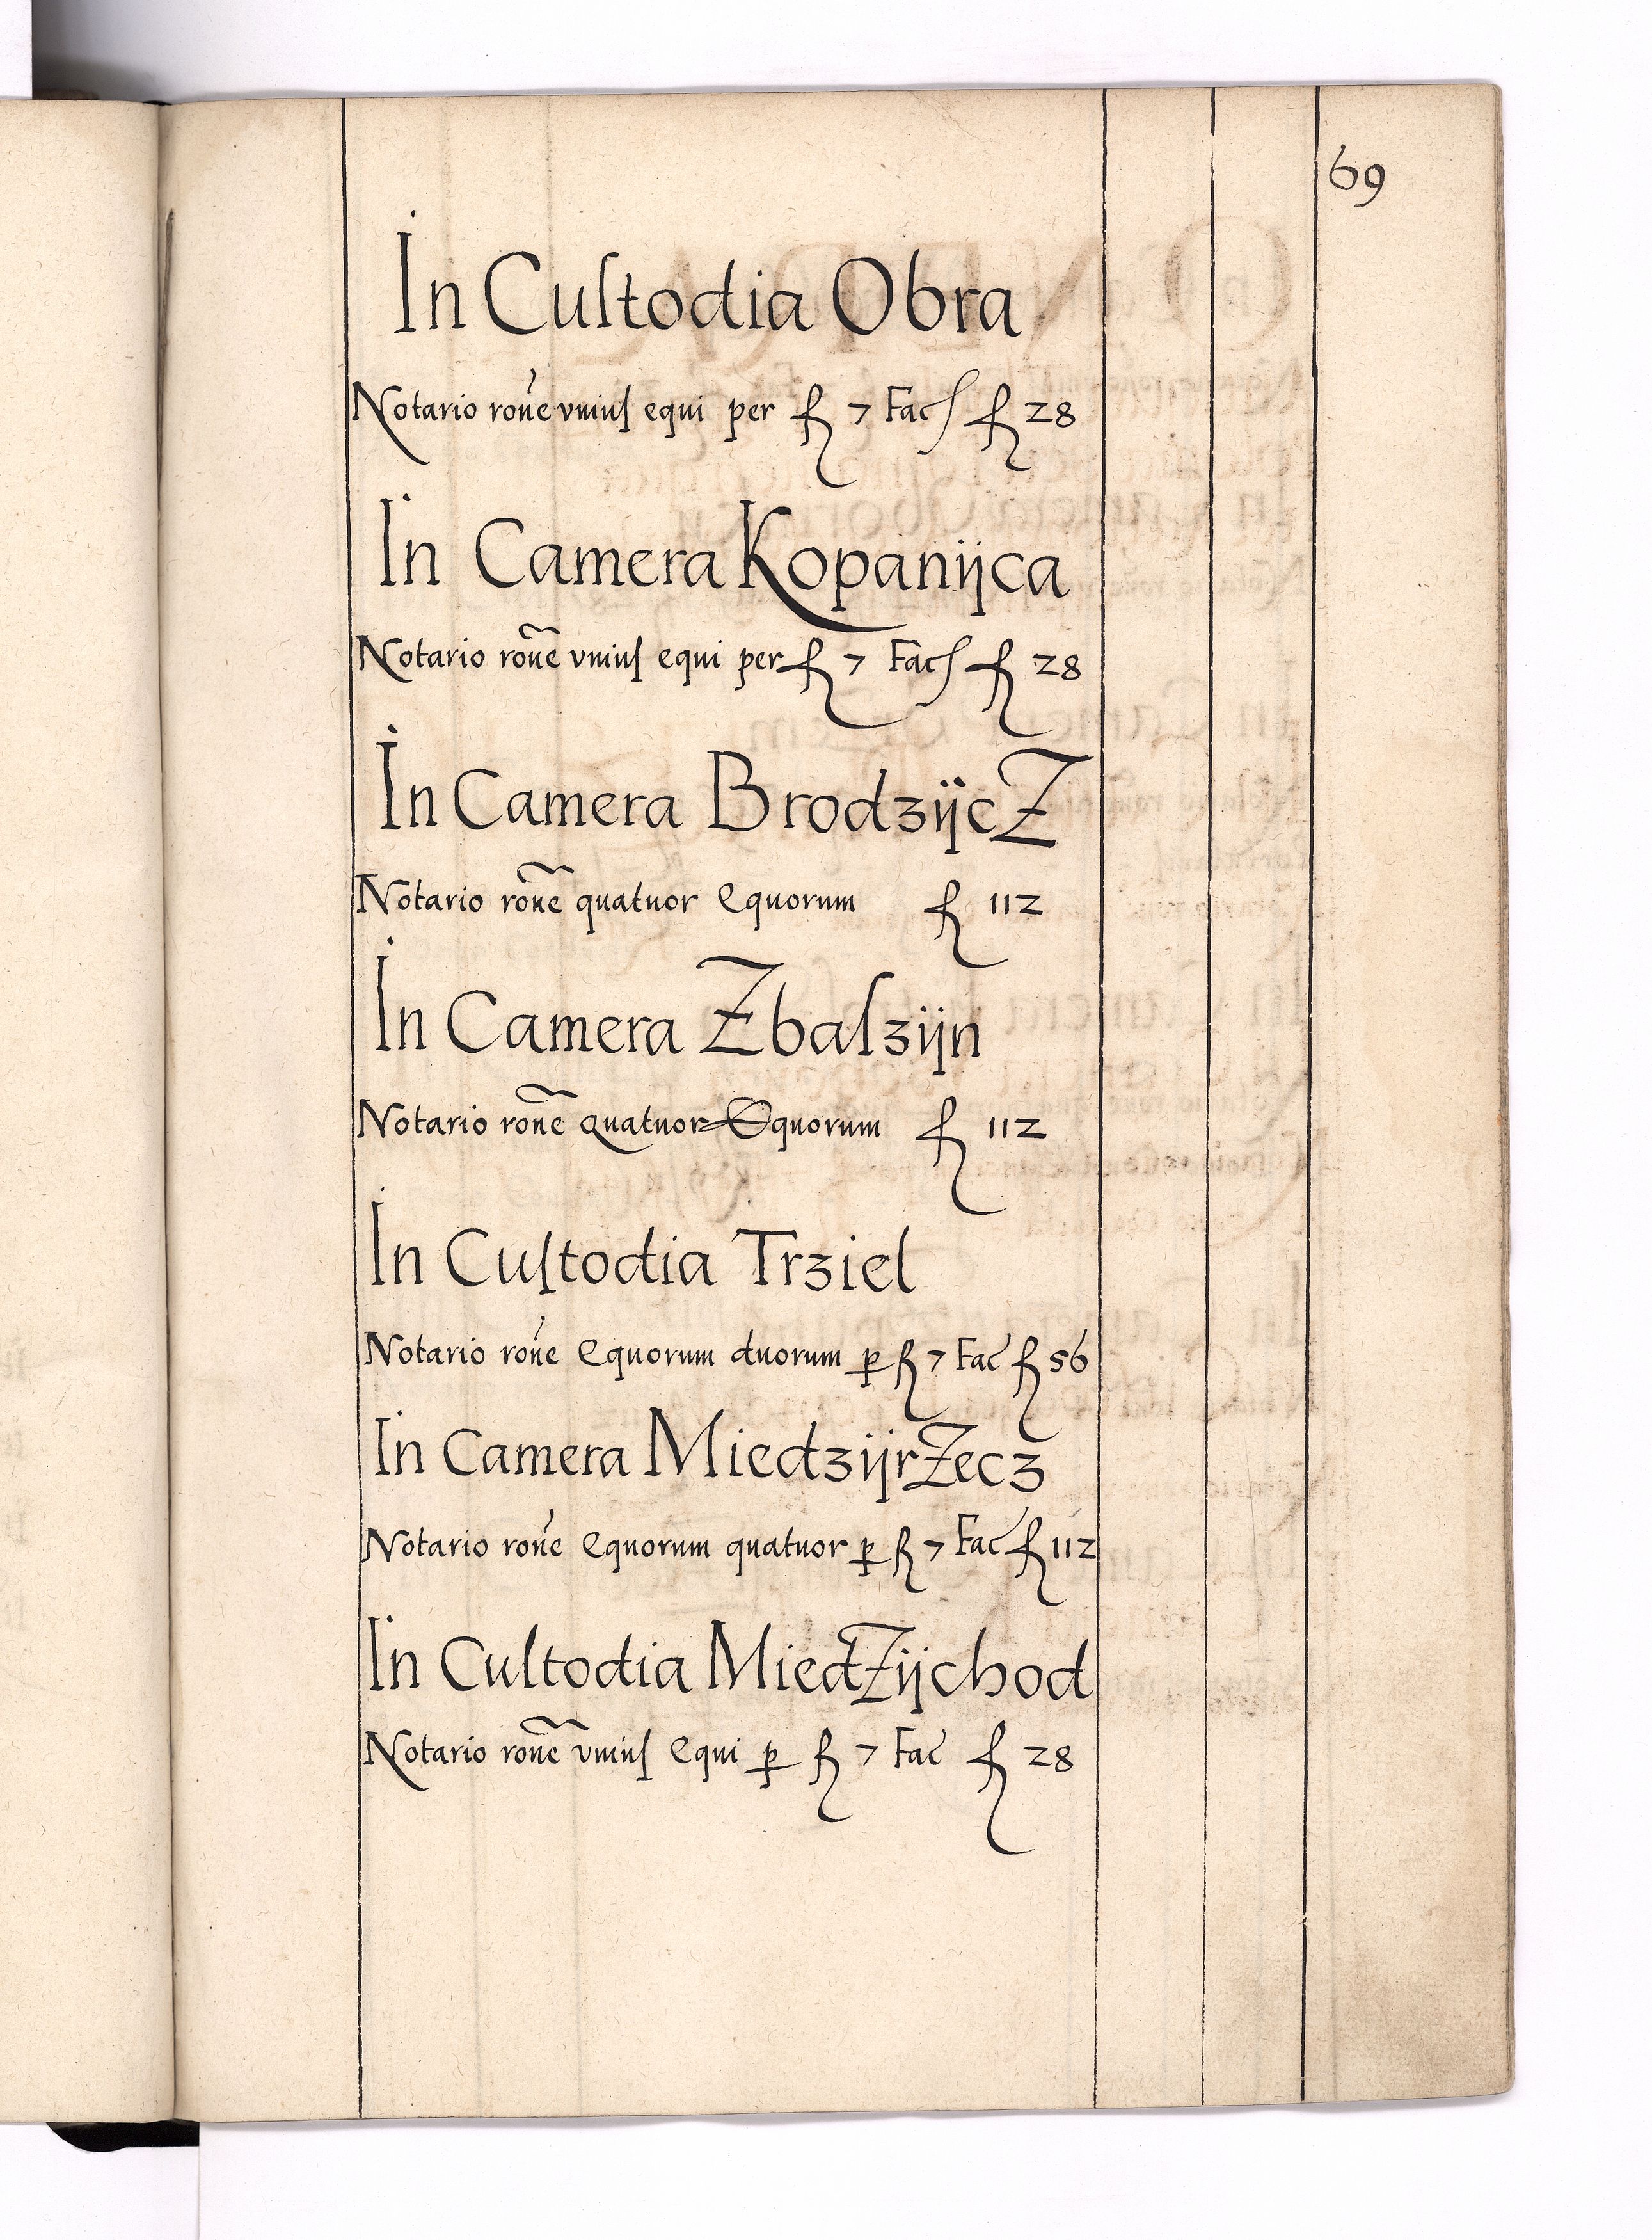 69
In Cuſtodia Obra
Notario rone̅ vniuſ equi per fl 7 Facſ fl 28
In Camera Kopanijca
Notario rone̅ vniuſ equi per fl 7 Facſ fl 28
In Camera BrodzijcZ
Notario rone̅ quatuor equorum fl 112
In Camera Zbaſzijn
Notario rone̅ quatuor Equorum fl 112
In Cuſtodia Trziel
Notario rone̅ equorum duorum ꝑ fl 7 Fac̅ fl 56
In Camera MiedzijrZecz
Notario rone̅ equorum quatuor ꝑ fl 7 Fac̅ fl 112
In Cuſtodia MiedZijchod
Notario rone̅ vniuſ equi ꝑ fl 7 Fac̅ fl 28